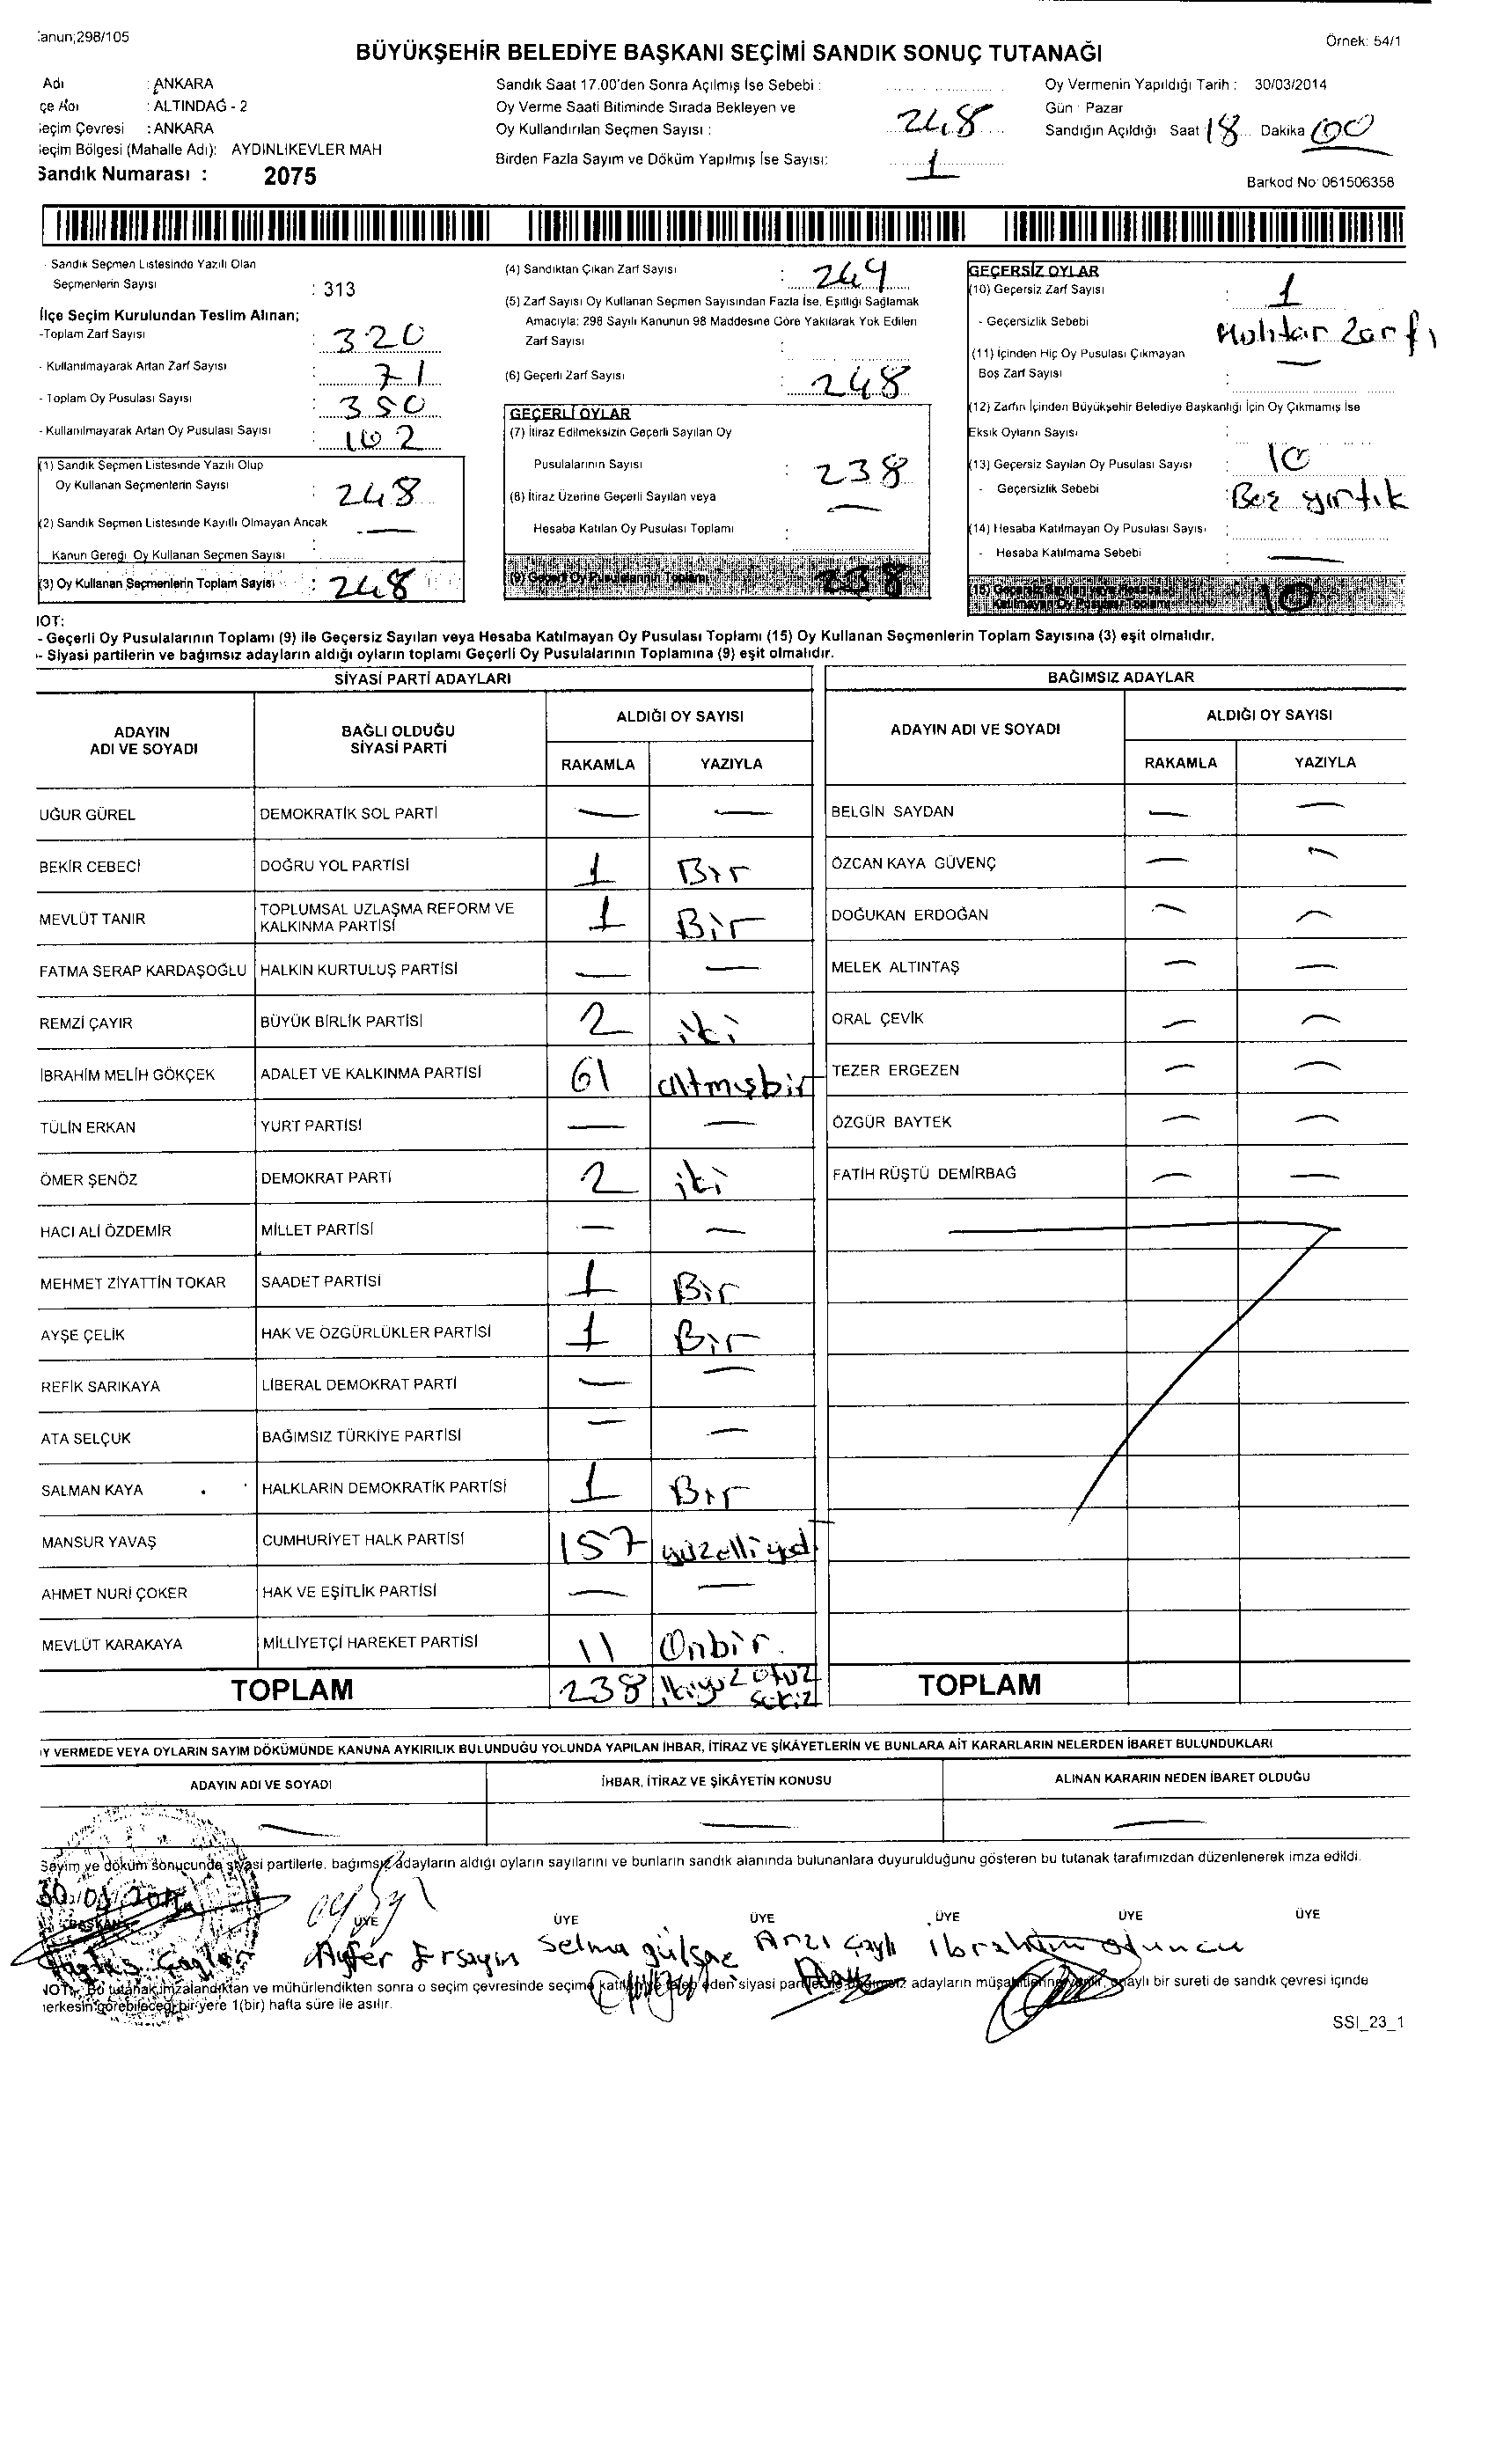 :anun;298/105
BÜYÜKŞEHİR BELEDİYE BAŞKANI SEÇİMİ SANDIK SONUÇ TUTANAĞI
Örnek: 54/1
Adı : ANKARA
çe Adı : ALTINDAĞ - 2
ieçim Çevresi : ANKARA
ieçim Bölgesi (Mahalle Adı): AYDINLIKEVLER MAH
Sandık Numarası : 2075
Sandık Saat 17.00'den Sonra Açılmış İse Sebebi :
Oy Verme Saati Bitiminde Sırada Bekleyen ve
Oy Kullandırılan Seçmen Sayısı : 248
Birden Fazla Sayım ve Döküm Yapılmış İse Sayısı: 1
Oy Vermenin Yapıldığı Tarih : 30/03/2014
Gün : Pazar
Sandığın Açıldığı Saat 18 Dakika 00
Barkod No: 061506358
- Sandık Seçmen Listesinde Yazılı Olan
Seçmenlerin Sayısı : 313
İlçe Seçim Kurulundan Teslim Alınan;
-Toplam Zarf Sayısı : 320
- Kullanılmayarak Artan Zarf Sayısı : 71
- Toplam Oy Pusulası Sayısı : 350
- Kullanılmayarak Artan Oy Pusulası Sayısı : 102
(1) Sandık Seçmen Listesinde Yazılı Olup
Oy Kullanan Seçmenlerin Sayısı : 248
(2) Sandık Seçmen Listesinde Kayıtlı Olmayan Ancak —
Kanun Gereği Oy Kullanan Seçmen Sayısı :
(3) Oy Kullanan Seçmenlerin Toplam Sayısı : 248
(4) Sandıktan Çıkan Zarf Sayısı : 249
(5) Zarf Sayısı Oy Kullanan Seçmen Sayısından Fazla İse, Eşitliği Sağlamak
Amacıyla: 298 Sayılı Kanunun 98 Maddesine Göre Yakılarak Yok Edilen
Zarf Sayısı :
(6) Geçerli Zarf Sayısı : 248
GEÇERLİ OYLAR
(7) İtiraz Edilmeksizin Geçerli Sayılan Oy
Pusulalarının Sayısı : 238
(8) İtiraz Üzerine Geçerli Sayılan veya —
Hesaba Katılan Oy Pusulası Toplamı :
(9) Geçerli Oy Pusulalarının Toplamı 238
GEÇERSİZ OYLAR
(10) Geçersiz Zarf Sayısı : 1
- Geçersizlik Sebebi Muhtar Zarfı
(11) İçinden Hiç Oy Pusulası Çıkmayan —
Boş Zarf Sayısı :
(12) Zarfın İçinden Büyükşehir Belediye Başkanlığı İçin Oy Çıkmamış İse
Eksik Oyların Sayısı :
(13) Geçersiz Sayılan Oy Pusulası Sayısı : 10
- Geçersizlik Sebebi : Boş yırtık
(14) Hesaba Katılmayan Oy Pusulası Sayısı :
- Hesaba Katılmama Sebebi : —
(15) Geçersiz Sayılan veya Hesaba
Katılmayan Oy Pusulası Toplamı 10
IOT:
- Geçerli Oy Pusulalarının Toplamı (9) ile Geçersiz Sayılan veya Hesaba Katılmayan Oy Pusulası Toplamı (15) Oy Kullanan Seçmenlerin Toplam Sayısına (3) eşit olmalıdır.
- Siyasi partilerin ve bağımsız adayların aldığı oyların toplamı Geçerli Oy Pusulalarının Toplamına (9) eşit olmalıdır.
SİYASİ PARTİ ADAYLARI
ADAYIN ADI VE SOYADI BAĞLI OLDUĞU SİYASİ PARTİ ALDIĞI OY SAYISI
RAKAMLA YAZIYLA
UĞUR GÜREL DEMOKRATİK SOL PARTİ — —
BEKİR CEBECİ DOĞRU YOL PARTİSİ 1 Bir
MEVLÜT TANIR TOPLUMSAL UZLAŞMA REFORM VE KALKINMA PARTİSİ 1 Bir
FATMA SERAP KARDAŞOĞLU HALKIN KURTULUŞ PARTİSİ — —
REMZİ ÇAYIR BÜYÜK BİRLİK PARTİSİ 2 iki
İBRAHİM MELİH GÖKÇEK ADALET VE KALKINMA PARTİSİ 61 altmışbir
TÜLİN ERKAN YURT PARTİSİ — —
ÖMER ŞENÖZ DEMOKRAT PARTİ 2 iki
HACI ALİ ÖZDEMİR MİLLET PARTİSİ — —
MEHMET ZİYATTİN TOKAR SAADET PARTİSİ 1 Bir
AYŞE ÇELİK HAK VE ÖZGÜRLÜKLER PARTİSİ 1 Bir
REFİK SARIKAYA LİBERAL DEMOKRAT PARTİ — —
ATA SELÇUK BAĞIMSIZ TÜRKİYE PARTİSİ — —
SALMAN KAYA HALKLARIN DEMOKRATİK PARTİSİ 1 Bir
MANSUR YAVAŞ CUMHURİYET HALK PARTİSİ 157 yüzelliyed
AHMET NURİ ÇOKER HAK VE EŞİTLİK PARTİSİ — —
MEVLÜT KARAKAYA MİLLİYETÇİ HAREKET PARTİSİ 11 Onbir
TOPLAM 238 ikiyüzotuz sekiz
BAĞIMSIZ ADAYLAR
ADAYIN ADI VE SOYADI ALDIĞI OY SAYISI
RAKAMLA YAZIYLA
BELGİN SAYDAN — —
ÖZCAN KAYA GÜVENÇ — —
DOĞUKAN ERDOĞAN — —
MELEK ALTINTAŞ — —
ORAL ÇEVİK — —
TEZER ERGEZEN — —
ÖZGÜR BAYTEK — —
FATİH RÜŞTÜ DEMİRBAĞ — —
TOPLAM
IY VERMEDE VEYA OYLARIN SAYIM DÖKÜMÜNDE KANUNA AYKIRILIK BULUNDUĞU YOLUNDA YAPILAN İHBAR, İTİRAZ VE ŞİKÂYETLERİN VE BUNLARA AİT KARARLARIN NELERDEN İBARET BULUNDUKLARI
ADAYIN ADI VE SOYADI İHBAR, İTİRAZ VE ŞİKÂYETİN KONUSU ALINAN KARARIN NEDEN İBARET OLDUĞU
— — —
Sayım ve döküm sonucunda siyasi partilerle, bağımsız adayların aldığı oyların sayılarını ve bunların sandık alanında bulunanlara duyurulduğunu gösteren bu tutanak tarafımızdan düzenlenerek imza edildi.
BAŞKAN ÜYE ÜYE ÜYE ÜYE ÜYE ÜYE
Ayfer Ersayın Selma gülşae Arzı Çaylı ibrahim oduncu
IOT: Bu tutanak imzalandıktan ve mühürlendikten sonra o seçim çevresinde seçime katılıp talep eden siyasi partilerle bağımsız adayların müşahitlerine verilir, onaylı bir sureti de sandık çevresi içinde
ıerkesin görebileceği bir yere 1(bir) hafta süre ile asılır.
SSI_23_1